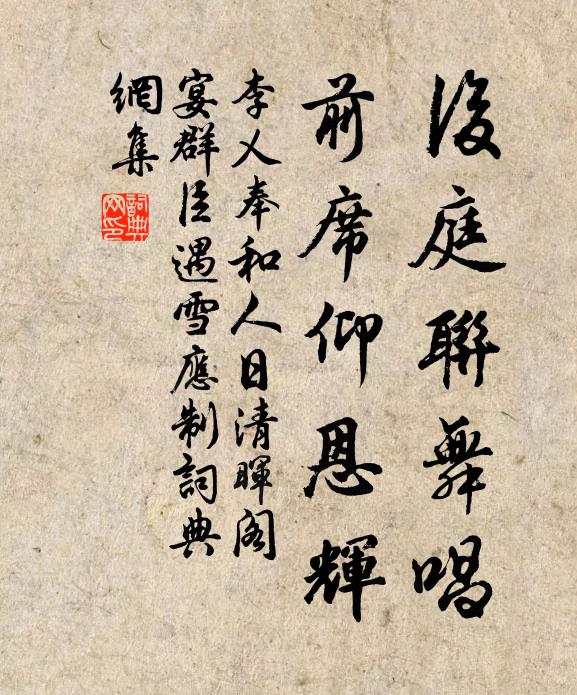 後庭聯舞唱
前席仰恩輝
李乂奉和人日清暉閣
宴群臣遇雪應制詞典
網集
詞典
网印